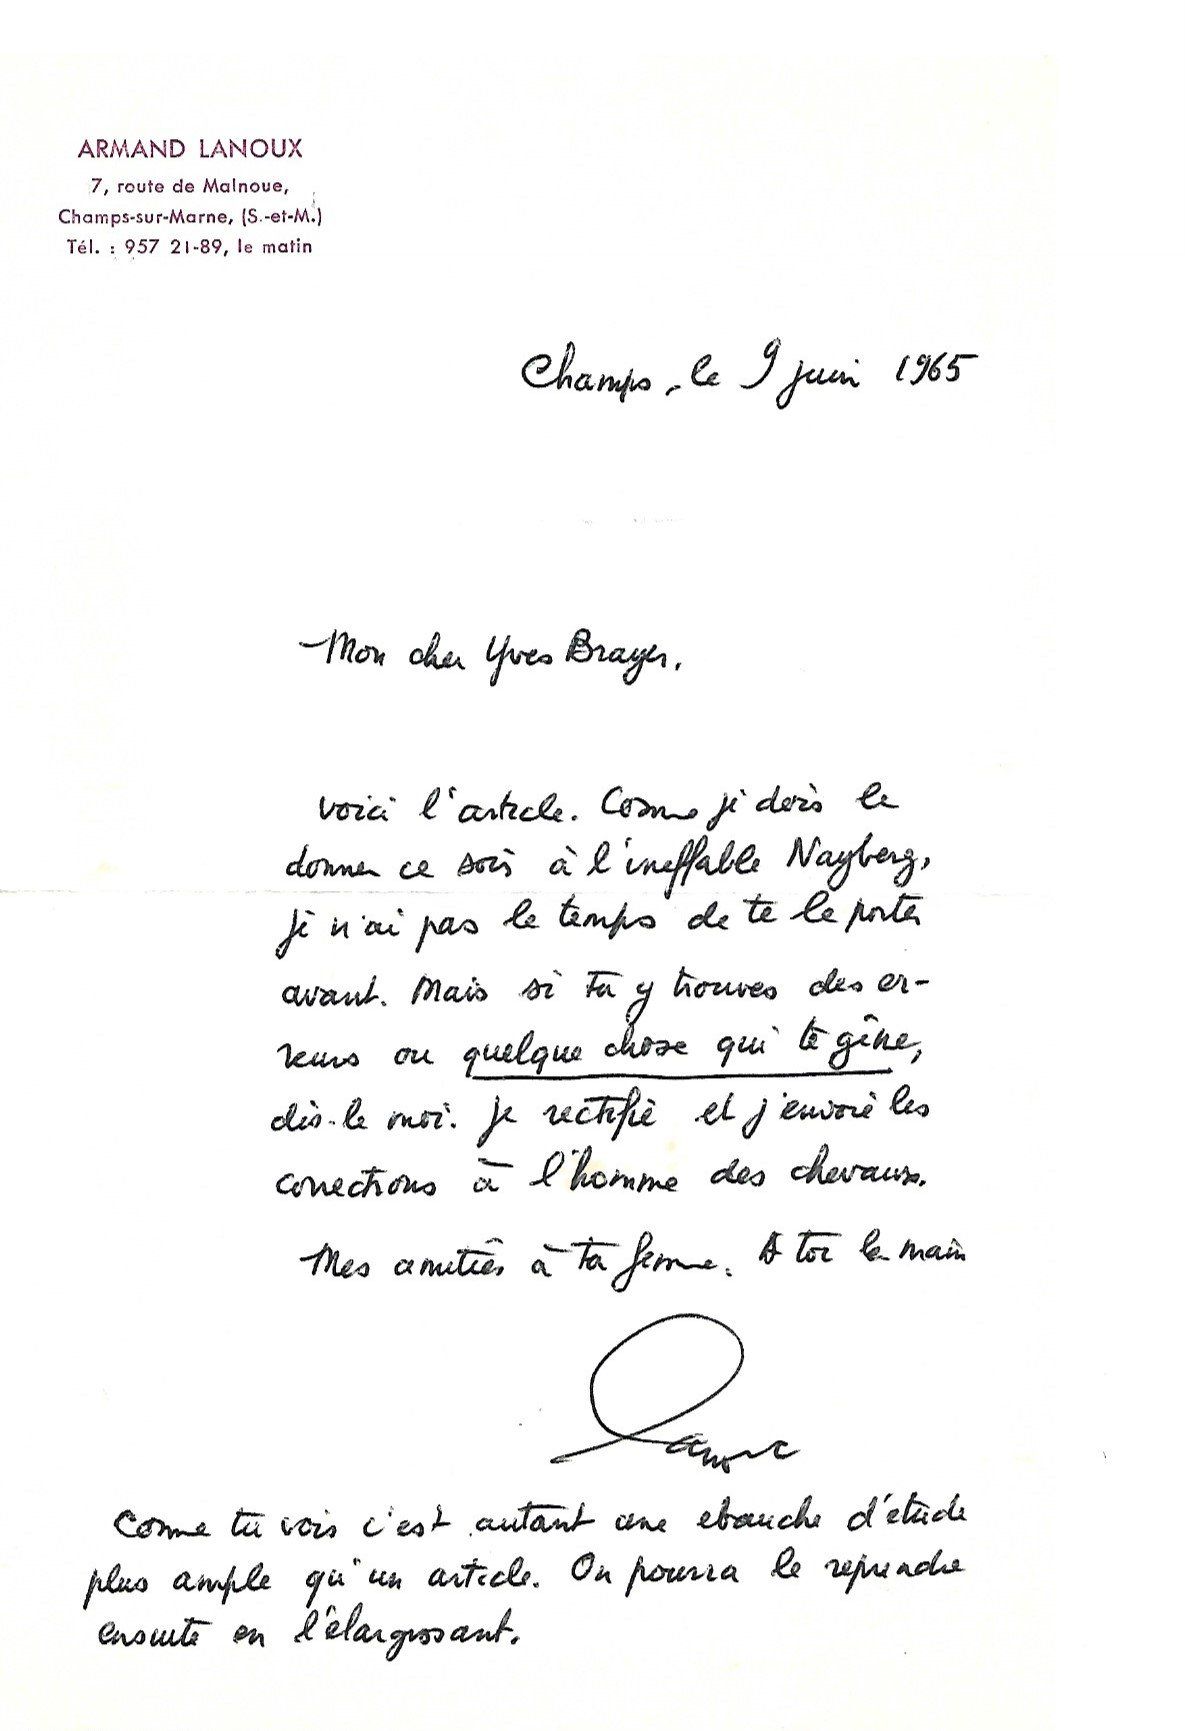 ARMAND LANOUX
7, route de Malnoue,
Champs-sur-Marne, (S.-et-M.)
Tél. : 957 21-89, le matin
Champs, le 9 juin 1965
Mon cher Yves Brayer,
voici l'article. Comme je dois le
donner ce soir à l'ineffable Nayberg,
je n'ai pas le temps de te le porter
avant. Mais si tu y trouves des er-
reurs ou quelque chose qui te gêne,
dis-le moi. Je rectifie et j'envoie les
corrections à l'homme des chevaux.
Mes amitiés à ta femme. A toi la main
Lanoux
Comme tu vois c'est autant une ebauche d'étude
plus ample qu'un article. On pourra le reprendre
ensuite en l'élargissant.